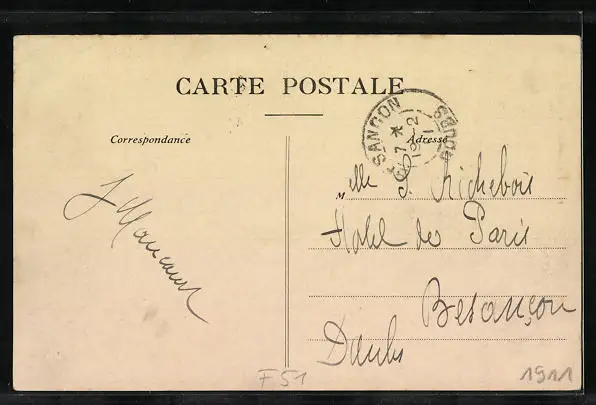 CARTE POSTALE
Correspondance
Adresse
SANÇON
DOUBS
Mlle J. Richebois
Hotel de Paris
Besançon
Doubs
F51
1911